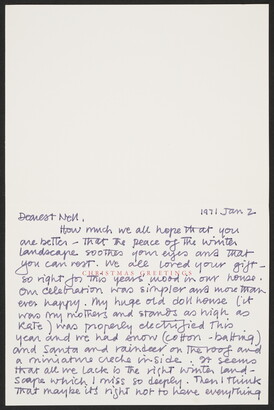 1971 Jan 2
Dearest Nell,
How much we all hope that you
are better - that the peace of the winter
landscape soothes your eyes and that
you can rest. We all loved your gift -
CHRISTMAS GREETINGS
so right for this years mood in our house.
Our celebration was simpler and more than
ever happy. My huge old doll house (it
was my mothers and stands as high as
Kate) was properly electrified this
year and we had snow (cotton-batting)
and Santa and reindeer on the roof and
a miniature creche inside. It seems
that all we lack is the right winter land-
scape which I miss so deeply. Then I think
that maybe it's right not to have everything